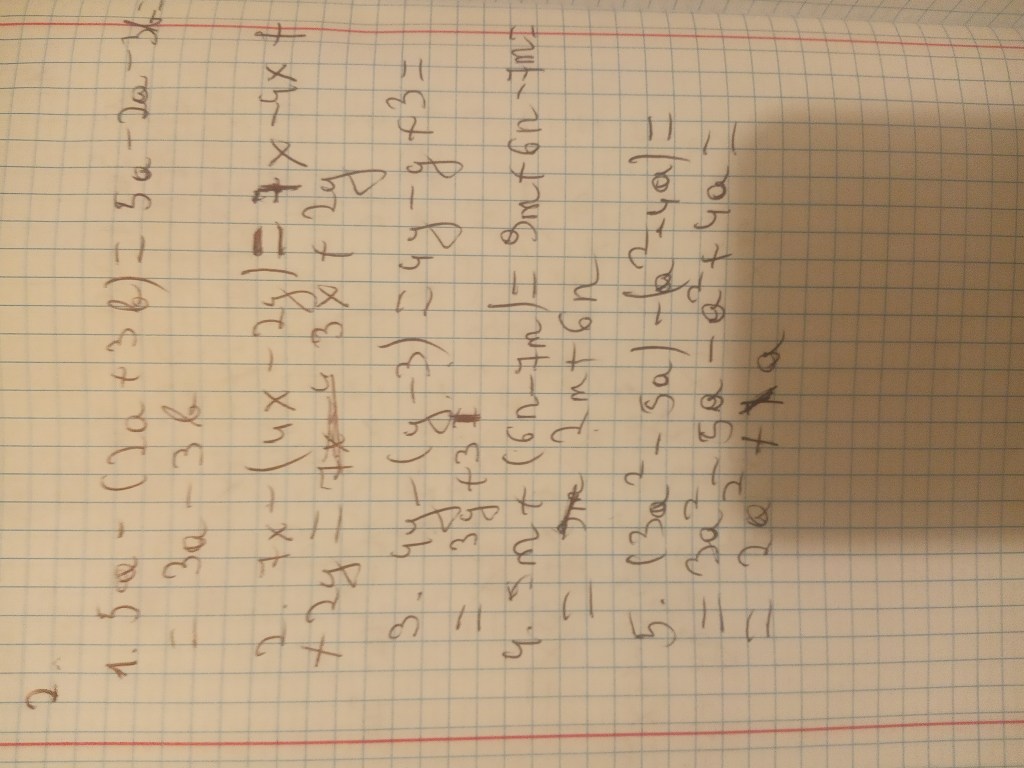 2.
1. 5a - (2a + 3b) = 5a - 2a - 3b =
= 3a - 3b
2. 7x - (4x - 2y) = 7x - 4x +
+ 2y = 3x + 2y
3. 4y - (y - 3) = 4y - y + 3 =
= 3y + 3
4. 9m + (6n - 7m) = 9m + 6n - 7m =
= 2m + 6n
5. (3a² - 5a) - (a² - 4a) =
= 3a² - 5a - a² + 4a =
= 2a² + a